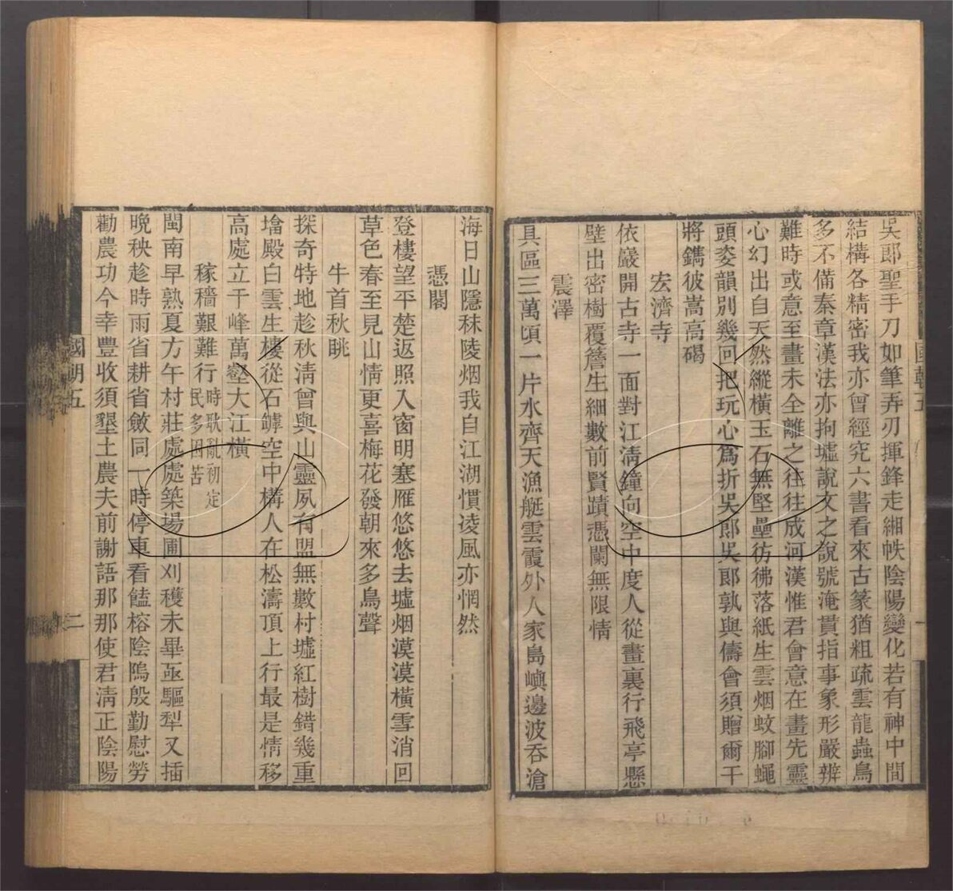 吳郎聖手刀如筆弄刃揮鋒走緗帙陰陽變化若有神中間
結構各精密我亦曾經究六書看來古篆猶粗疏雲龍蟲鳥
多不備秦章漢法亦拘墟說文之說號淹貫指事象形嚴辨
難時或意至畫未全離之往往成河漢惟君會意在畫先靈
心幻出自天然縱橫玉石無堅壘彷彿落紙生雲烟蚊腳蠅
頭姿韻別幾回把玩心為折吳郎吳郎孰與儔會須贈爾干
將鐫彼嵩高碣
宏濟寺
依巖開古寺一面對江清鐘向空中度人從畫裏行飛亭懸
壁出密樹覆簷生細數前賢蹟憑闌無限情
震澤
具區三萬頃一片水齊天漁艇雲霞外人家島嶼邊波吞滄
海日山隱秣陵烟我自江湖慣凌風亦惘然
憑閣
登樓望平楚返照入窗明塞雁悠悠去墟烟漠漠橫雪消回
草色春至見山情更喜梅花發朝來多鳥聲
牛首秋眺
探奇特地趁秋清曾與山靈夙有盟無數村墟紅樹錯幾重
墖殿白雲生樓從石罅空中構人在松濤頂上行最是情移
高處立千峰萬壑大江橫
稼穡艱難行 時歌亂初定 民多困苦
閩南早熟夏方午村莊處處築場圃刈穫未畢亟驅犁又插
晚秧趁時雨省耕省斂同一時停車看饁榕陰隝殷勤慰勞
勸農功今幸豐收須墾土農夫前謝語那那使君清正陰陽
國朝五
二